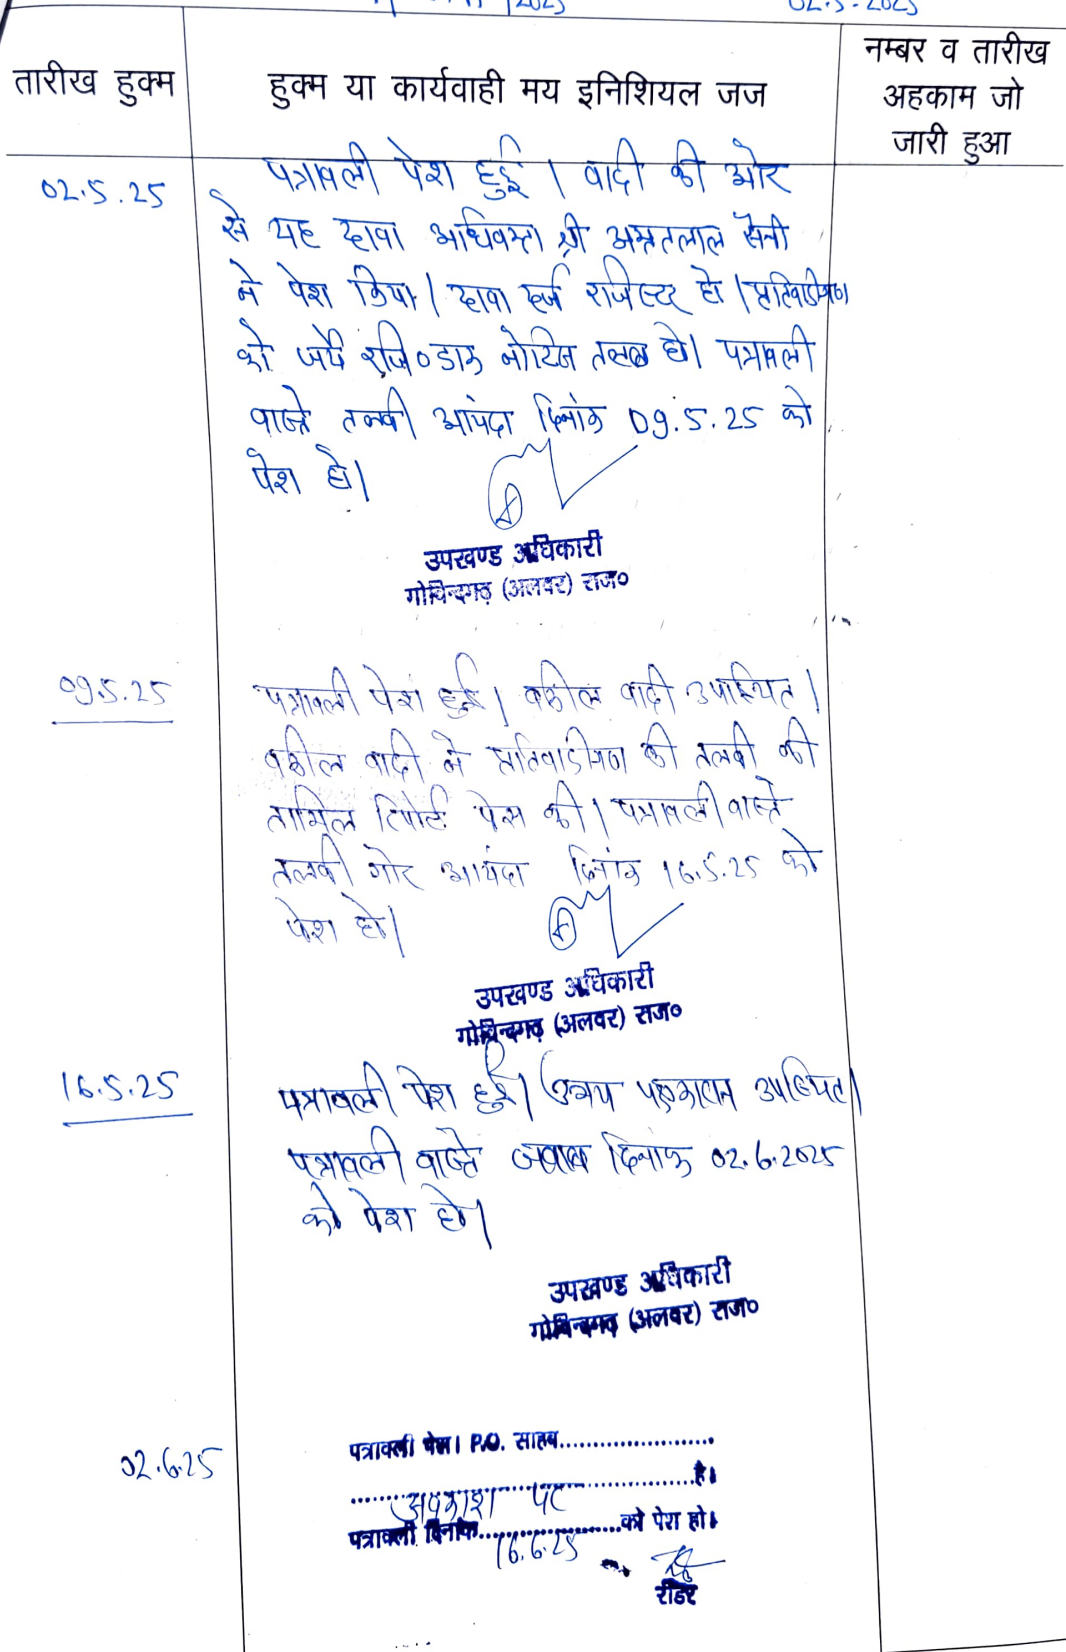 02.5.2025
तारीख हुक्म
हुक्म या कार्यवाही मय इनिशियल जज
नम्बर व तारीख
अहकाम जो
जारी हुआ
02.5.25
पत्रावली पेश हुई । वादी की ओर
से यह दावा अधिवक्ता श्री अमृतलाल सैनी
ने पेश किया । दावा दर्ज रजिस्टर हो । प्रतिवादीगण
को जर्ये रजि० डाक नोटिस तलब हो। पत्रावली
वास्ते तलबी आयंदा दिनांक 09.5.25 को
पेश हो।
उपखण्ड अधिकारी
गोविन्दगढ़ (अलवर) राज०
09.5.25
पत्रावली पेश हुई । वकील वादी उपस्थित ।
वकील वादी ने प्रतिवादीगण की तलबी की
तामिल रिपोर्ट पेस की । पत्रावली वास्ते
तलबी गोर आयंदा दिनांक 16.5.25 को
पेश हो।
उपखण्ड अधिकारी
गोविन्दगढ़ (अलवर) राज०
16.5.25
पत्रावली पेश हुई । उभय पक्षकारान उपस्थित।
पत्रावली वास्ते जवाब दिनांक 02.6.2025
को पेश हो।
उपखण्ड अधिकारी
गोविन्दगढ़ (अलवर) राज०
02.6.25
पत्रावली पेश। P.O. साहब......................
अवकाश पर है।
पत्रावली दिनांक 16.6.25 को पेश हो।
रीडर